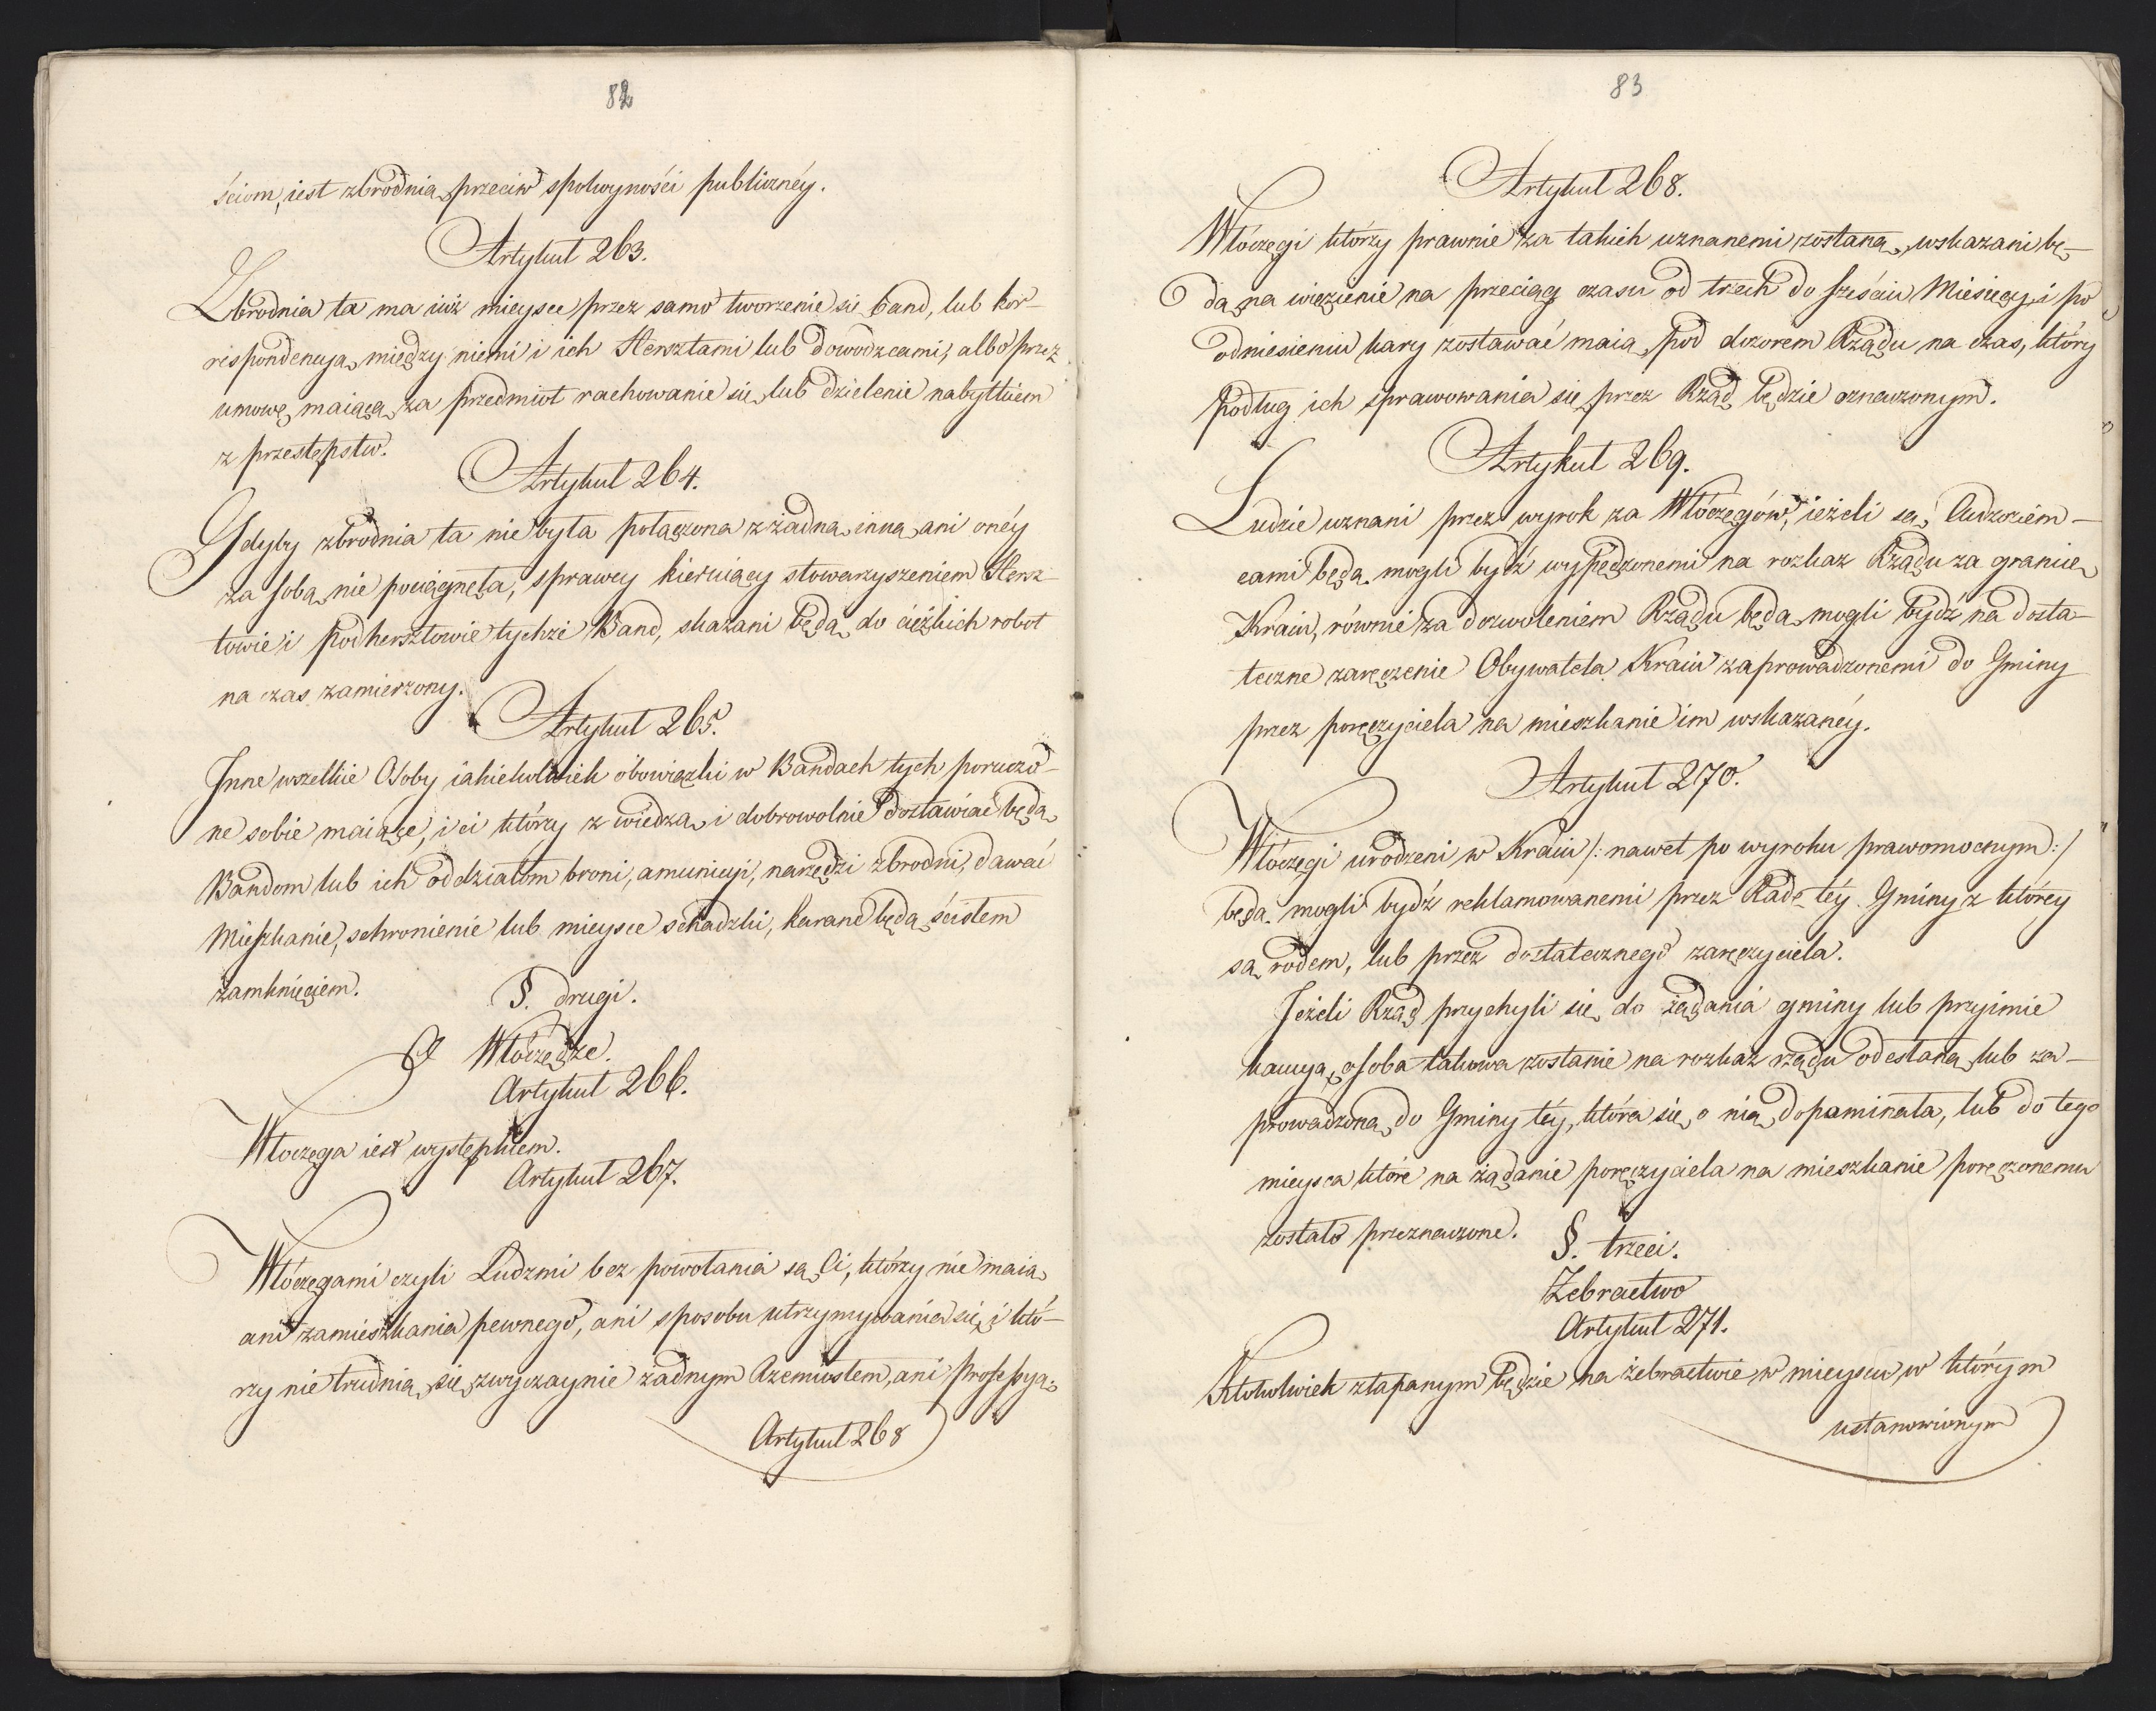 82
ściom, iest zbrodnią przeciw spokoyności publicznéy.
Artykuł 263.
Zbrodnia ta ma iuż mieysce przez samo tworzenie się band, lub kor-
respondencyą między niemi i ich Hersztami lub dowodzcami, albo przez
umowę maiącą za przedmiot rachowanie się lub dzielenie nabytkiem
z przestępstw.
Artykuł 264.
Gdyby zbrodnia ta nie była połączona z żadną inną ani onéy
za sobą nie pociągnęła, sprawcy kieruiący stowarzyszeniem Hersz-
towie i podhersztowie tychże Band, skazani będą do ciężkich robot
na czas zamierzony.
Artykuł 265.
Inne wszelkie Osoby iakiekolwiek obowiązki w Bandach tych poruczo-
ne sobie maiące, i ci którzy z wiedzą i dobrowolnie dostawiać będą
Bandom lub ich oddziałom broni, amunicyi, narzędzi zbrodni, dawać
Mieszkanie, schronienie lub mieysce schadzki, karane będą ścisłem
zamknięciem.
§. drugi.
O Włóczędze.
Artykuł 266.
Włoczęga iest występkiem.
Artykuł 267.
Włóczęgami czyli Ludzmi bez powołania są Ci, którzy nie maią
ani zamieszkania pewnego, ani sposobu utrzymywania się, i któ-
rzy nie trudnią się zwyczaynie żadnym Rzemiosłem, ani Professyą.
Artykuł 268
83
Artykuł 268.
Włóczęgi którzy prawnie za takich uznanemi zostaną, wskazani bę-
dą na więzienie na przeciąg czasu od trzech do sześciu Miesięcy, i po
odniesieniu kary zostawać maią pod dozorem Rządu na czas, który
podług ich sprawowania się przez Rząd będzie oznaczonym.
Artykuł 269.
Ludzie uznani przez wyrok za Włóczęgów, ieżeli są Cudzoziem-
cami będą mogli bydź wypędzonemi na rozkaz Rządu za granicę
Kraiu, równie za dozwoleniem Rządu będą mogli bydź na dosta-
teczne zaręczenie Obywatela Kraiu zaprowadzonemi do Gminy
przez poręczyciela na mieszkanie im wskazanéy.
Artykuł 270.
Włóczęgi urodzeni w Kraiu /: nawet po wyroku prawomocnym :/
będą mogli bydź reklamowanemi przez Radę téy Gminy z którey
są rodem, lub przez dostatecznego zaręczyciela.
Jeżeli Rząd przychyli się do żądania gminy lub przyimie
kaucyą, osoba takowa zostanie na rozkaz rządu odesłaną lub za-
prowadzoną do Gminy téy, która się o nią dopaminała, lub do tego
mieysca które na żądanie poręczyciela na mieszkanie poręczonemu
zostało przeznaczone.
§. trzeci.
Żebractwo
Artykuł 271.
Ktokolwiek złapanym będzie na żebractwie w mieyscu w którym
ustanowionym